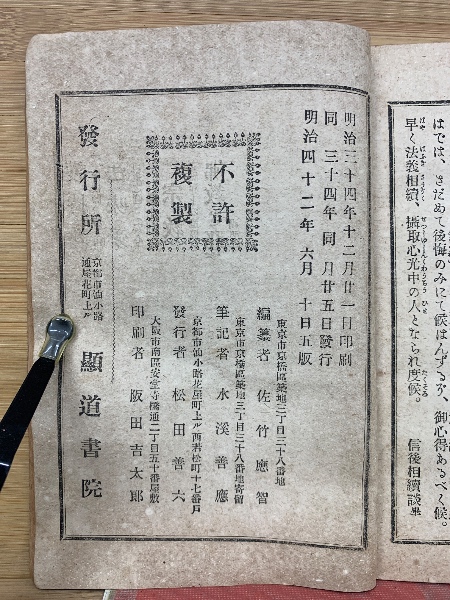 はでは、さだめて後悔のみにて候はんずるぞ、御心得あるべく候。
早く法義相續、攝取心光中の人となられ度候。
信後相續談 畢
明治三十四年十二月廿一日印刷
同　三十四年　同　月廿五日發行
明治四十二年六月　十日五版
不許
複製
東京市京橋區築地三丁目三十八番地
編纂者　佐竹應智
東京市京橋區築地三丁目三十八番地寄留
筆記者　水溪善應
京都市油小路花屋町上ル西若松町十七番戶
發行者　松田善六
大阪市南區安堂寺橋通二丁目五十番屋敷
印刷者　阪田吉太郎
發行所　京都市油小路
通屋花町上ル
顯道書院